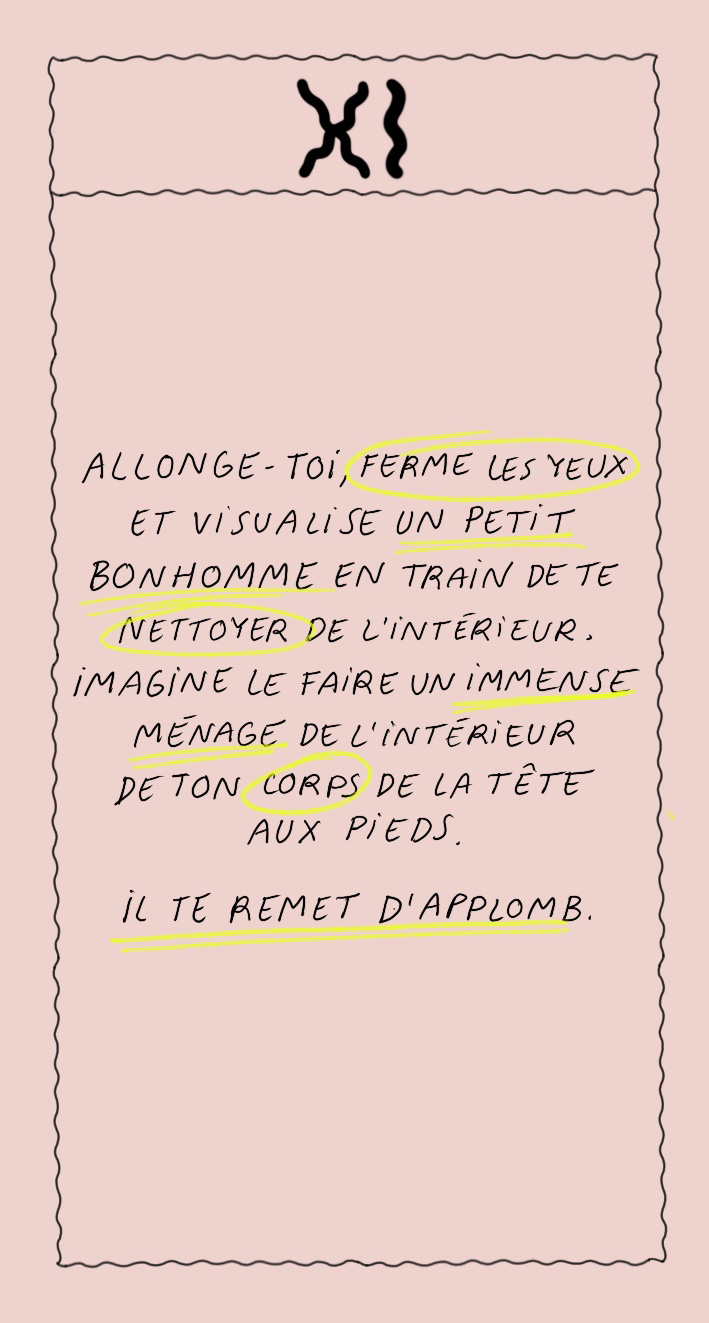 XI
ALLONGE-TOI, FERME LES YEUX
ET VISUALISE UN PETIT
BONHOMME EN TRAIN DE TE
NETTOYER DE L'INTÉRIEUR.
IMAGINE LE FAIRE UN IMMENSE
MÉNAGE DE L'INTÉRIEUR
DE TON CORPS DE LA TÊTE
AUX PIEDS.
IL TE REMET D'APPLOMB.